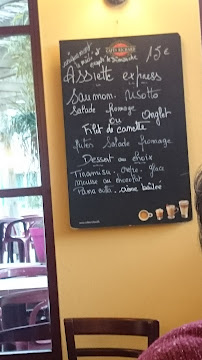 15€
Assiette express
Saumon. risotto
Salade fromage
ou Onglet
Filet de canette
frites Salade fromage
Dessert au choix
Tiramisu. crêpe. glace
mousse au chocolat
Panacotta. crème brûlée